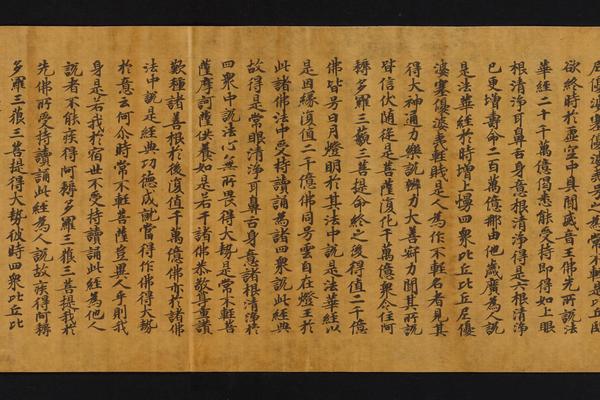 尼優婆塞優婆夷号之為常不輕是比丘臨
欲終時於虛空中具聞威音王佛先所說法
華經二十千萬億偈悉能受持即得如上眼
根清淨耳鼻舌身意根清淨得是六根清淨
已更增壽命二百萬億那由他歲廣為人說
是法華經於時增上慢四衆比丘比丘尼優
婆塞優婆夷輕賤是人為作不輕名者見其
得大神通力樂說辯力大善寂力聞其所說
皆信伏隨從是菩薩復化千萬億衆令住阿
耨多羅三藐三菩提命終之後得值二千億
佛皆号日月燈明於其法中說是法華經以
是因緣復值二千億佛同号雲自在燈王於
此諸佛法中受持讀誦為諸四衆說此經典
故得是常眼清淨耳鼻舌身意諸根清淨於
四衆中說法心無所畏得大勢是常不輕菩
薩摩訶薩供養如是若干諸佛恭敬尊重讚
歎種諸善根於後復值千萬億佛亦於諸佛
法中說是經典功德成就當得作佛得大勢
於意云何尒時常不輕菩薩豈異人乎則我
身是若我於宿世不受持讀誦此經為他人
說者不能疾得阿耨多羅三藐三菩提我於
先佛所受持讀誦此經為人說故疾得阿耨
多羅三藐三菩提得大勢彼時四衆比丘比